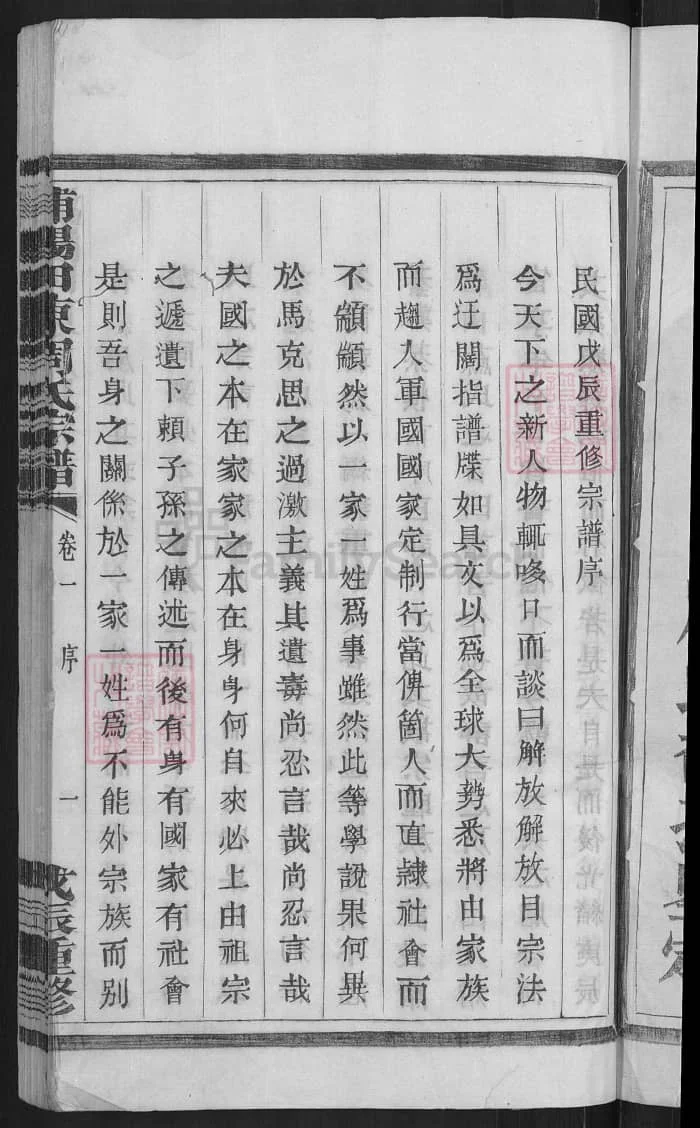 民國戊辰重修宗譜序
今天下之新人物輒喙口而談曰解放解放目宗法
爲迂闊指譜牒如具文以爲全球大勢悉將由家族
而趨人軍國國家定制行當俾箇人而直隷社會而
不顓顓然以一家一姓爲事雖然此等學說果何異
於馬克思之過激主義其遺毒尚忍言哉尚忍言哉
夫國之本在家家之本在身身何自來必上由祖宗
之遞遺下賴子孫之傳述而後有身有國家有社會
是則吾身之關係於一家一姓爲不能外宗族而别
浦陽田東周氏宗譜 卷一 序 一 戊辰重修
FamilySearch